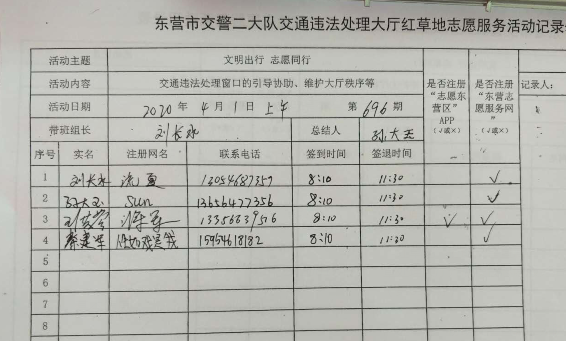 东营市交警二大队交通违法处理大厅红草地志愿服务活动记录
活动主题 文明出行 志愿同行
活动内容 交通违法处理窗口的引导协助、维护大厅秩序等
活动日期 2020年4月1日上午 第696期
带班组长 刘长水 总结人 孙大玉
是否注册“志愿东营区”APP（√或×）
是否注册“东营志愿服务网”（√或×）
记录人：
序号 实名 注册网名 联系电话 签到时间 签退时间
1 刘长水 流 13054687359 8:10 11:30 √
2 孙大玉 Sun 13656477356 8:10 11:30 √
3 8:10 11:30 √ √
4 蔡建军 15954618182 8:10 11:30 √
5
6
7
8